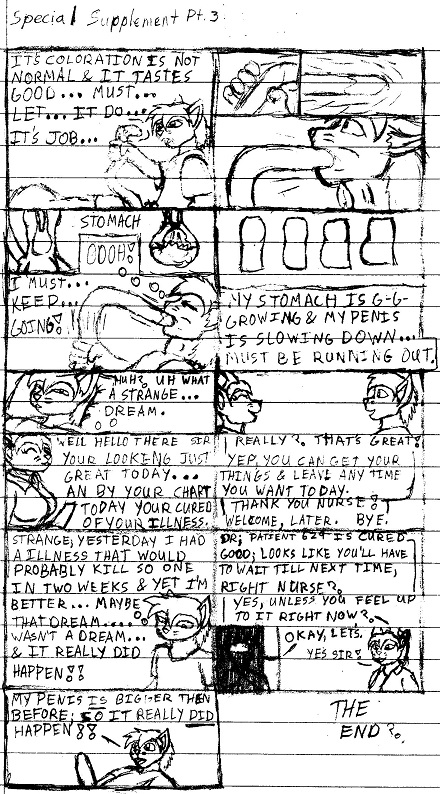 Special Supplement Pt. 3
IT'S COLORATION IS NOT
NORMAL & IT TASTES
GOOD... MUST...
LET... IT DO...
IT'S JOB...
STOMACH
OOOH!
I MUST...
KEEP...
GOING!
MY STOMACH IS G-G-
GROWING & MY PENIS
IS SLOWING DOWN...
MUST BE RUNNING OUT.
HUH? UH WHAT
A STRANGE...
DREAM.
WELL HELLO THERE SIR
YOUR LOOKING JUST
GREAT TODAY...
AN BY YOUR CHART
TODAY YOUR CURED
OF YOUR ILLNESS.
REALLY?. THAT'S GREAT!
YEP, YOU CAN GET YOUR
THINGS & LEAVE ANY TIME
YOU WANT TODAY.
THANK YOU NURSE!
WELCOME, LATER. BYE.
STRANGE, YESTERDAY I HAD
A ILLNESS THAT WOULD
PROBABLY KILL SO ONE
IN TWO WEEKS & YET I'M
BETTER... MAYBE
THAT DREAM....
WASN'T A DREAM...
& IT REALLY DID
HAPPEN!!
DR, PATIENT 624 IS CURED
GOOD; LOOKS LIKE YOU'LL HAVE
TO WAIT TILL NEXT TIME,
RIGHT NURSE?.
YES, UNLESS YOU FEEL UP
TO IT RIGHT NOW?.
OKAY, LETS.
YES SIR!
MY PENIS IS BIGGER THEN
BEFORE; SO IT REALLY DID
HAPPEN!!
THE
END?.